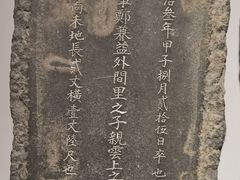 治叁年甲子捌月貳拾伍日卒也
鄭兼益外間里之子親雲上之
尚未地長貳丈橫壹丈陸尺也